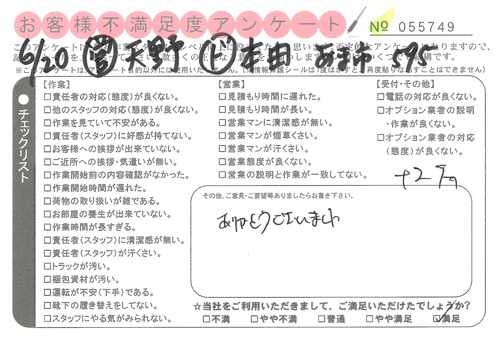 お客様不満足度アンケート
№ 055749
6/20 営 天野 L 本田 595
チェックリスト
【作業】
□責任者の対応(態度)が良くない。
□他のスタッフの対応(態度)が良くない。
□作業を見ていて不安がある。
□責任者(スタッフ)に好感が持てない。
□お客様への挨拶が出来ていない。
□ご近所への挨拶・気遣いが無い。
□作業開始前の内容確認がなかった。
□作業開始時間が遅れた。
□荷物の取り扱いが雑である。
□お部屋の養生が出来ていない。
□作業時間が長すぎる。
□責任者(スタッフ)に清潔感が無い。
□責任者(スタッフ)が汗くさい。
□トラックが汚い。
□梱包資材が汚い。
□運転が不安(下手)である。
□靴下の履き替えをしてない。
□スタッフにやる気がみられない。
【営業】
□見積もり時間に遅れた。
□見積もり時間が長い。
□営業マンに清潔感が無い。
□営業マンが煙草くさい。
□営業マンが汗くさい。
□営業態度が良くない。
□営業の説明と作業が一致してない。
【受付・その他】
□電話の対応が良くない。
□オプション業者の説明
・作業が良くない。
□オプション業者の対応
(態度)が良くない。
その他、ご意見・ご要望等ありましたらお書き下さい。
ありがとうございました
☆当社をご利用いただきまして、ご満足いただけたでしょうか?
□不満 □やや不満 □普通 □やや満足 □満足